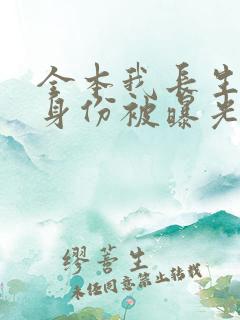 全本我长生
身份被曝光
缪荅生
未经同意禁止转载